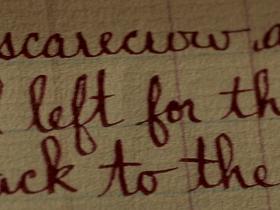 scarecrow.
left for th
ack to the